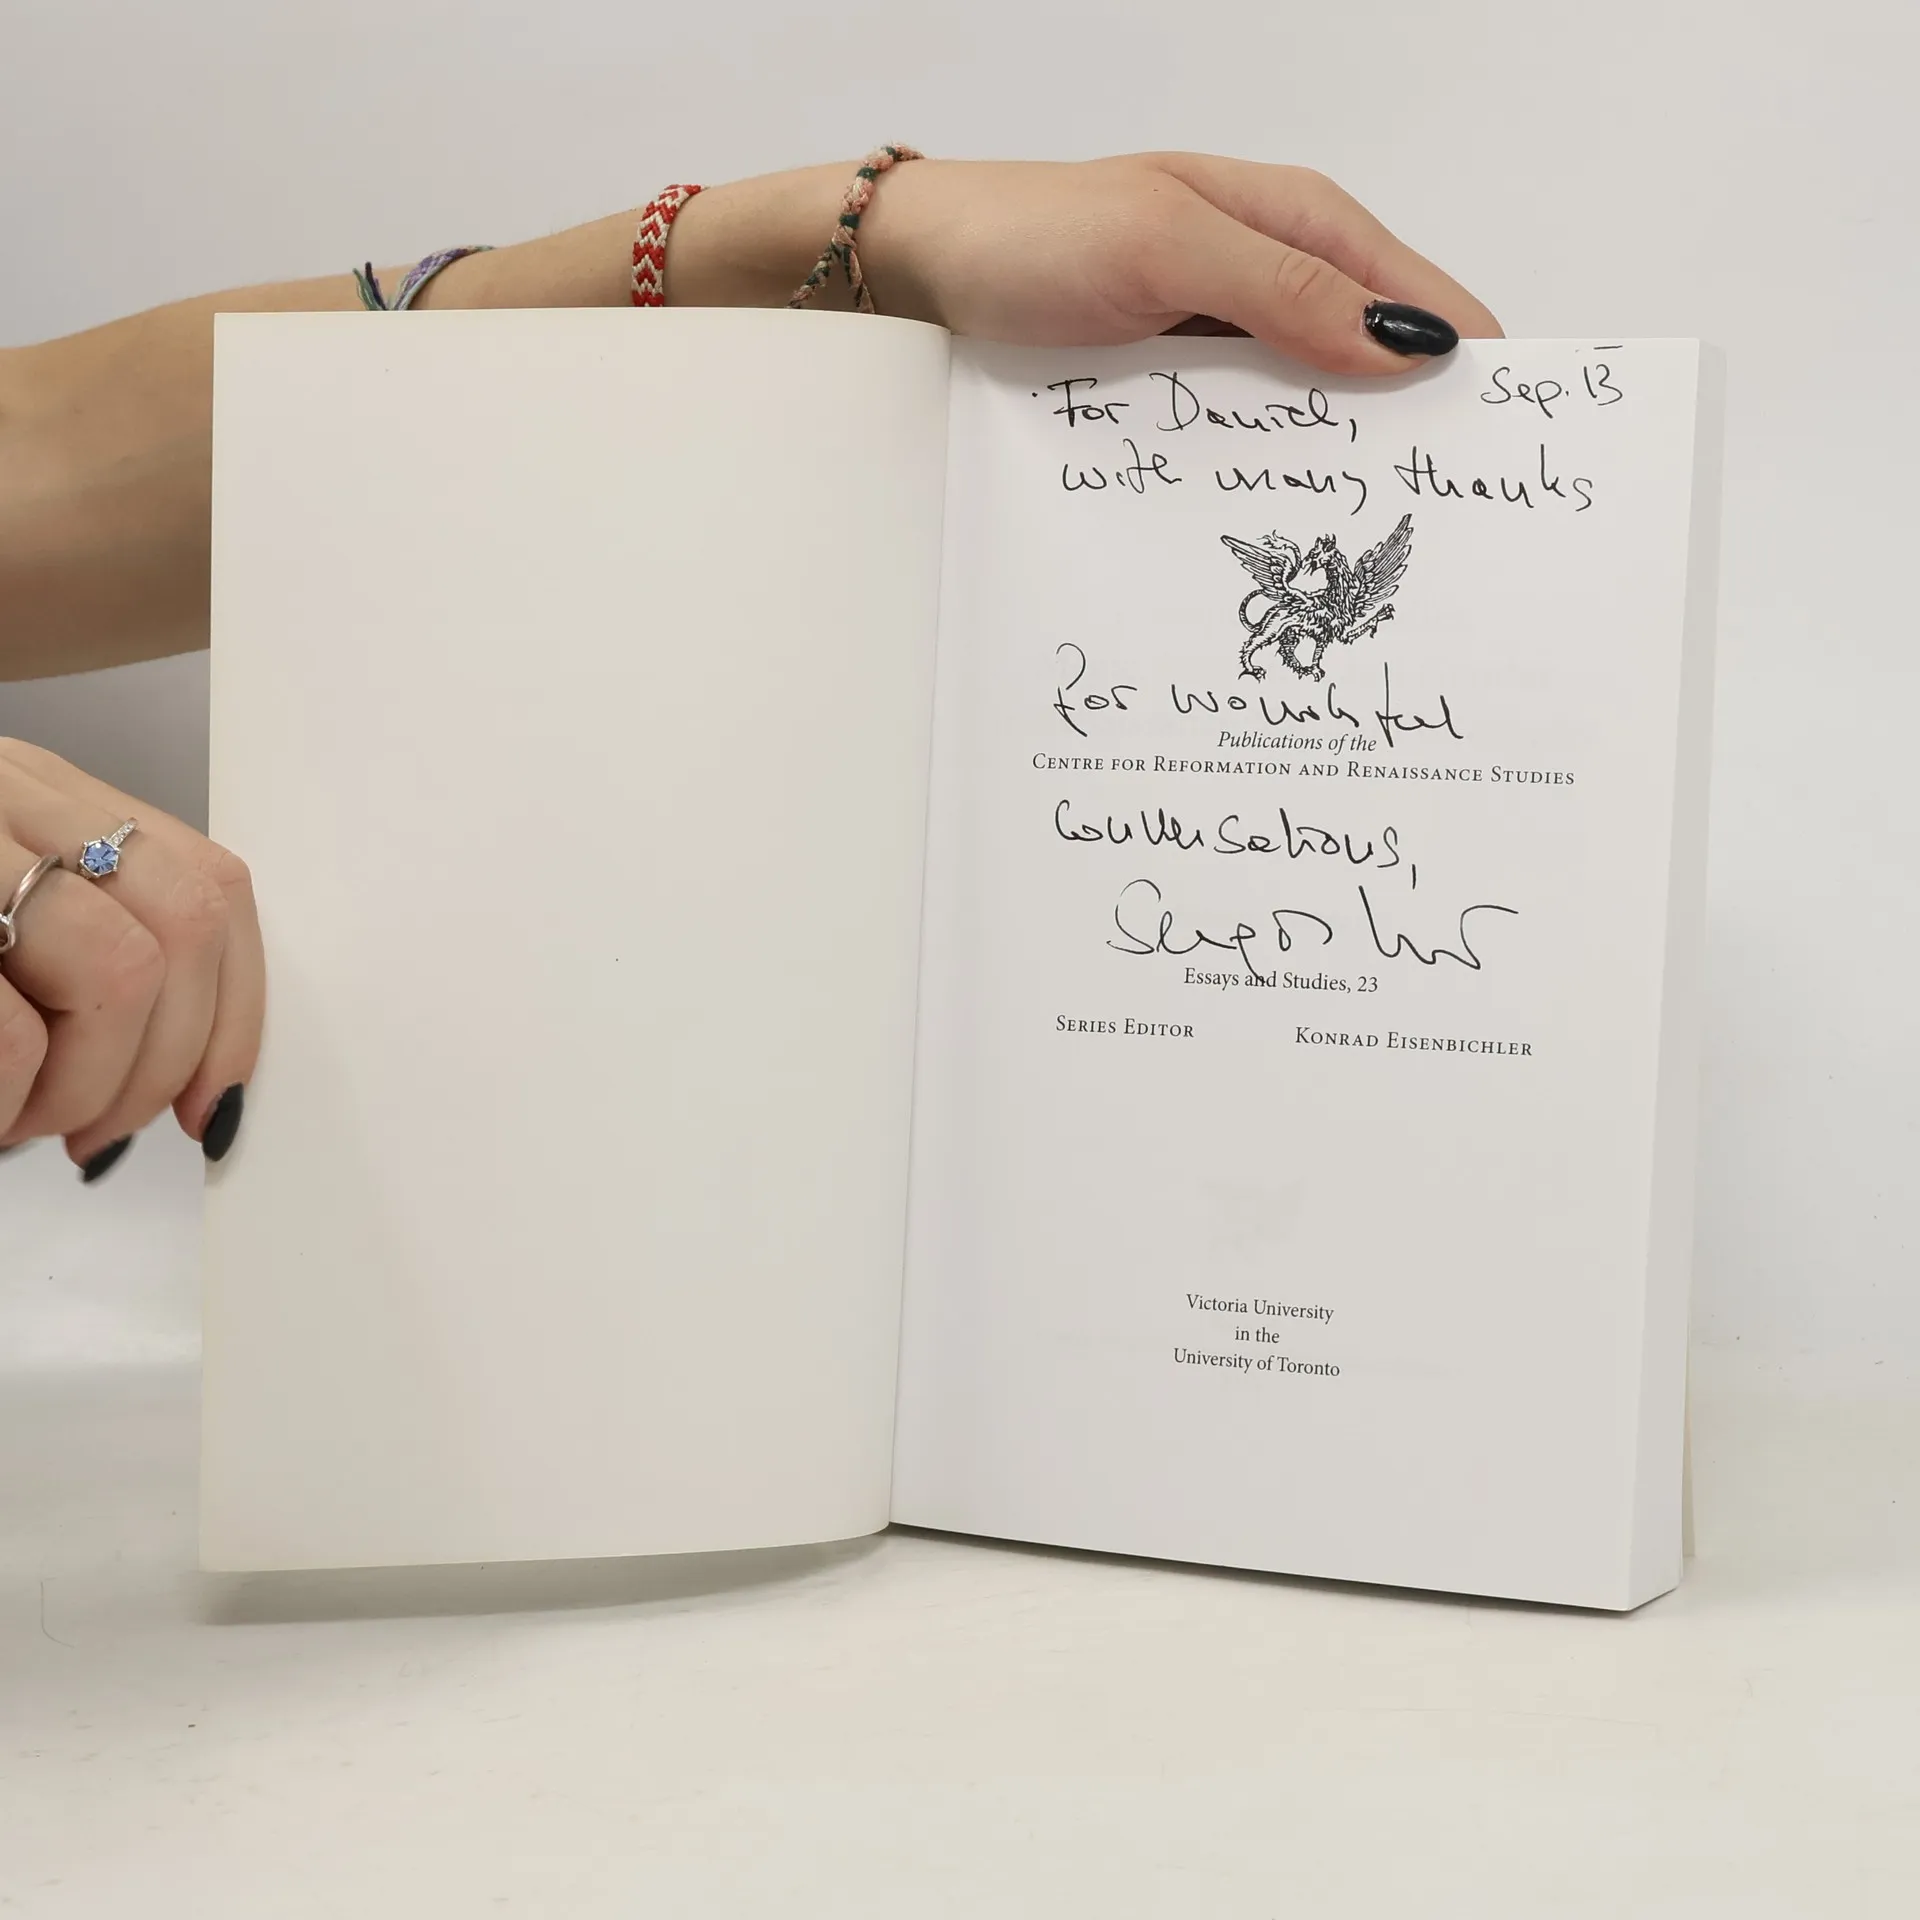 Sep. 13
For Daniel,
with many thanks
for wonderful
Publications of the
CENTRE FOR REFORMATION AND RENAISSANCE STUDIES
Conversations,
Essays and Studies, 23
SERIES EDITOR KONRAD EISENBICHLER
Victoria University
in the
University of Toronto